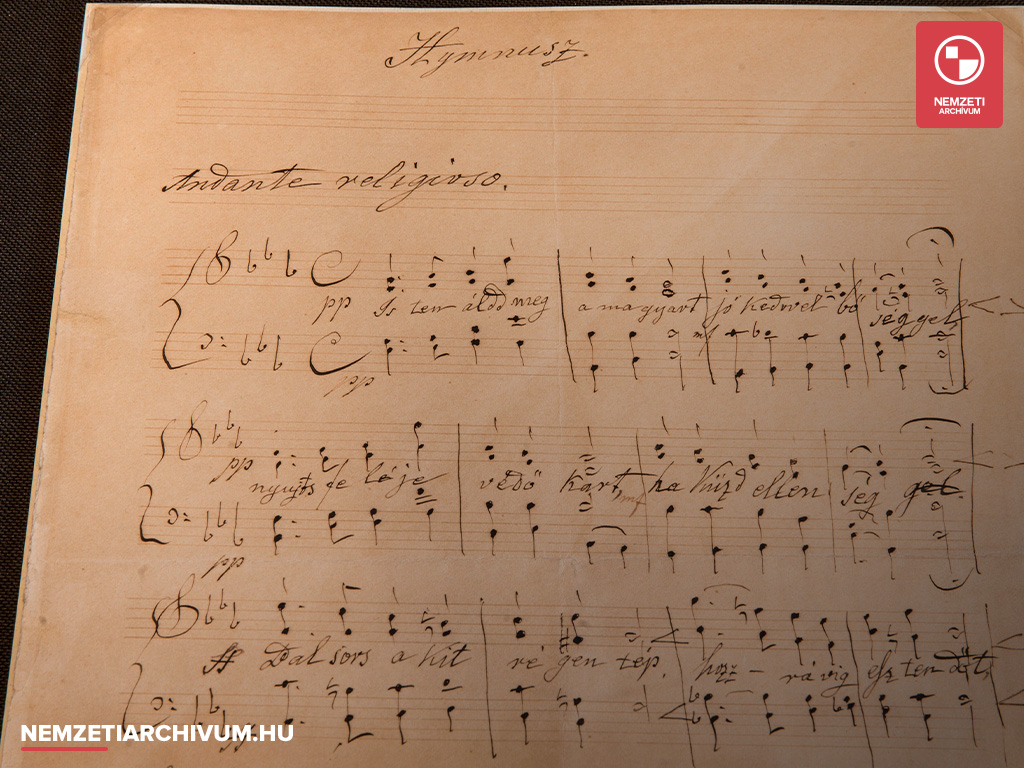 Hymnusz.
NEMZETI
ARCHÍVUM
Andante religioso.
pp Is ten áldd meg a magyart jó kedvvel bő séggel
pp
pp nyujts fe léje védő kart ha küzd ellen ség gel.
mf
pp
ff Bal sors a kit ré gen tép, hozz – rá víg esz ten dőt,
ff
NEMZETIARCHIVUM.HU